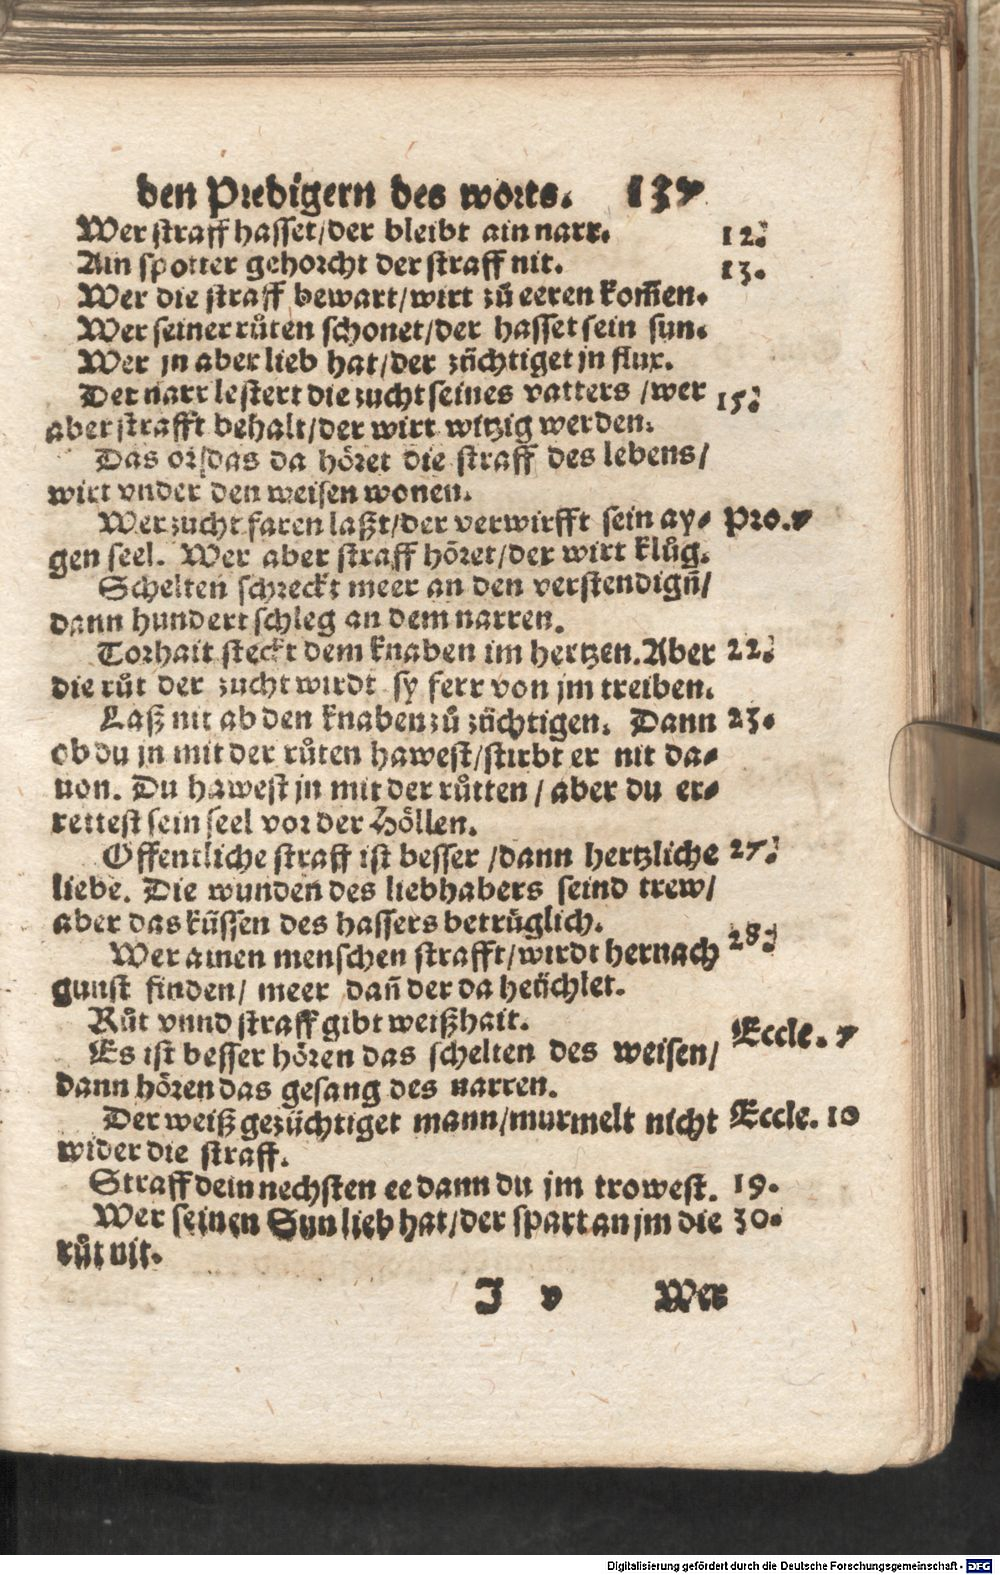 den Predigern des worts. 137
Wer straff hasset/der bleibt ain narr. 12.
Ain spotter gehorcht der straff nit. 13.
Wer die straff bewart/wirt zů eeren kom̃en.
Wer seiner růten schonet/der hasset sein sun.
Wer jn aber lieb hat/der züchtiget jn flux.
Der narr lestert die zucht seines vatters /wer 15.
aber strafft behalt/der wirt witzig werden.
Das or/das da höret die straff des lebens/
wirt vnder den weisen wonen.
Wer zucht faren laßt/der verwirfft sein ay- Pro.
gen seel. Wer aber straff höret/der wirt klůg.
Schelten schreckt meer an den verstendign̄/
dann hundert schleg an dem narren.
Torhait steckt dem knaben im hertzen. Aber 22.
die růt der zucht wirdt sy ferr von jm treiben.
Laß nit ab den knaben zů züchtigen. Dann 23.
ob du jn mit der růten hawest/stirbt er nit da-
uon. Du hawest jn mit der růtten / aber du er-
rettest sein seel vor der Höllen.
Offentliche straff ist besser /dann hertzliche 27.
liebe. Die wunden des liebhabers seind trew/
aber das küssen des hassers betrüglich.
Wer ainen menschen strafft/wirdt hernach 28.
gunst finden/ meer dañ der da heüchlet.
Růt vnnd straff gibt weißhait.
Es ist besser hören das schelten des weisen/ Eccle. 7
dann hören das gesang des narren.
Der weiß gezüchtiget mann/murmelt nicht Eccle. 10
wider die straff.
Straff dein nechsten ee dann du jm trowest. 19.
Wer seinen Sun lieb hat/der spart an jm die 30.
růt nit.
J v Wer
Digitalisierung gefördert durch die Deutsche Forschungsgemeinschaft - DFG